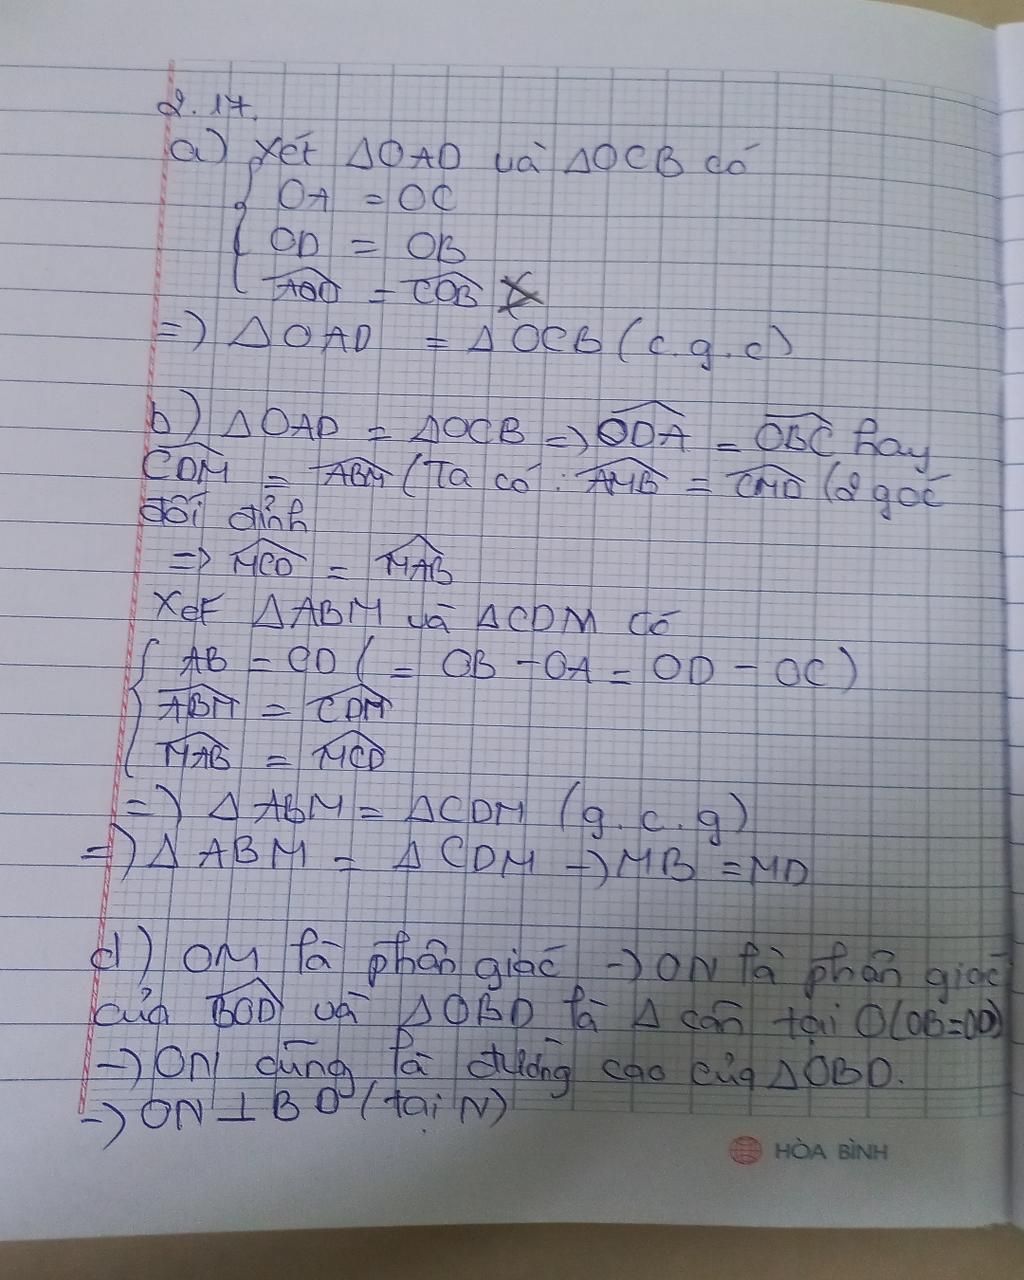 2.17.
a) Xét ΔOAD và ΔOCB có
OA = OC
OD = OB
AOD = COB
=> ΔOAD = ΔOCB (c.g.c)
b) ΔOAD = ΔOCB => ODA = OBC hay
CDM = ABM (Ta có : AMB = CMD (2 góc
đối đỉnh
=> MCD = MAB
Xét ΔABM và ΔCDM có
AB = CD ( = OB - OA = OD - OC)
ABM = CDM
MAB = MCD
=> ΔABM = ΔCDM (g.c.g)
=> ΔABM = ΔCDM -> MB = MD
d) OM là phân giác -> ON là phân giác
của BOD và ΔOBD là Δ cân tại O(OB=OD)
-> ON cũng là đường cao của ΔOBD.
-> ON ⊥ BD (tại N)
HÒA BÌNH